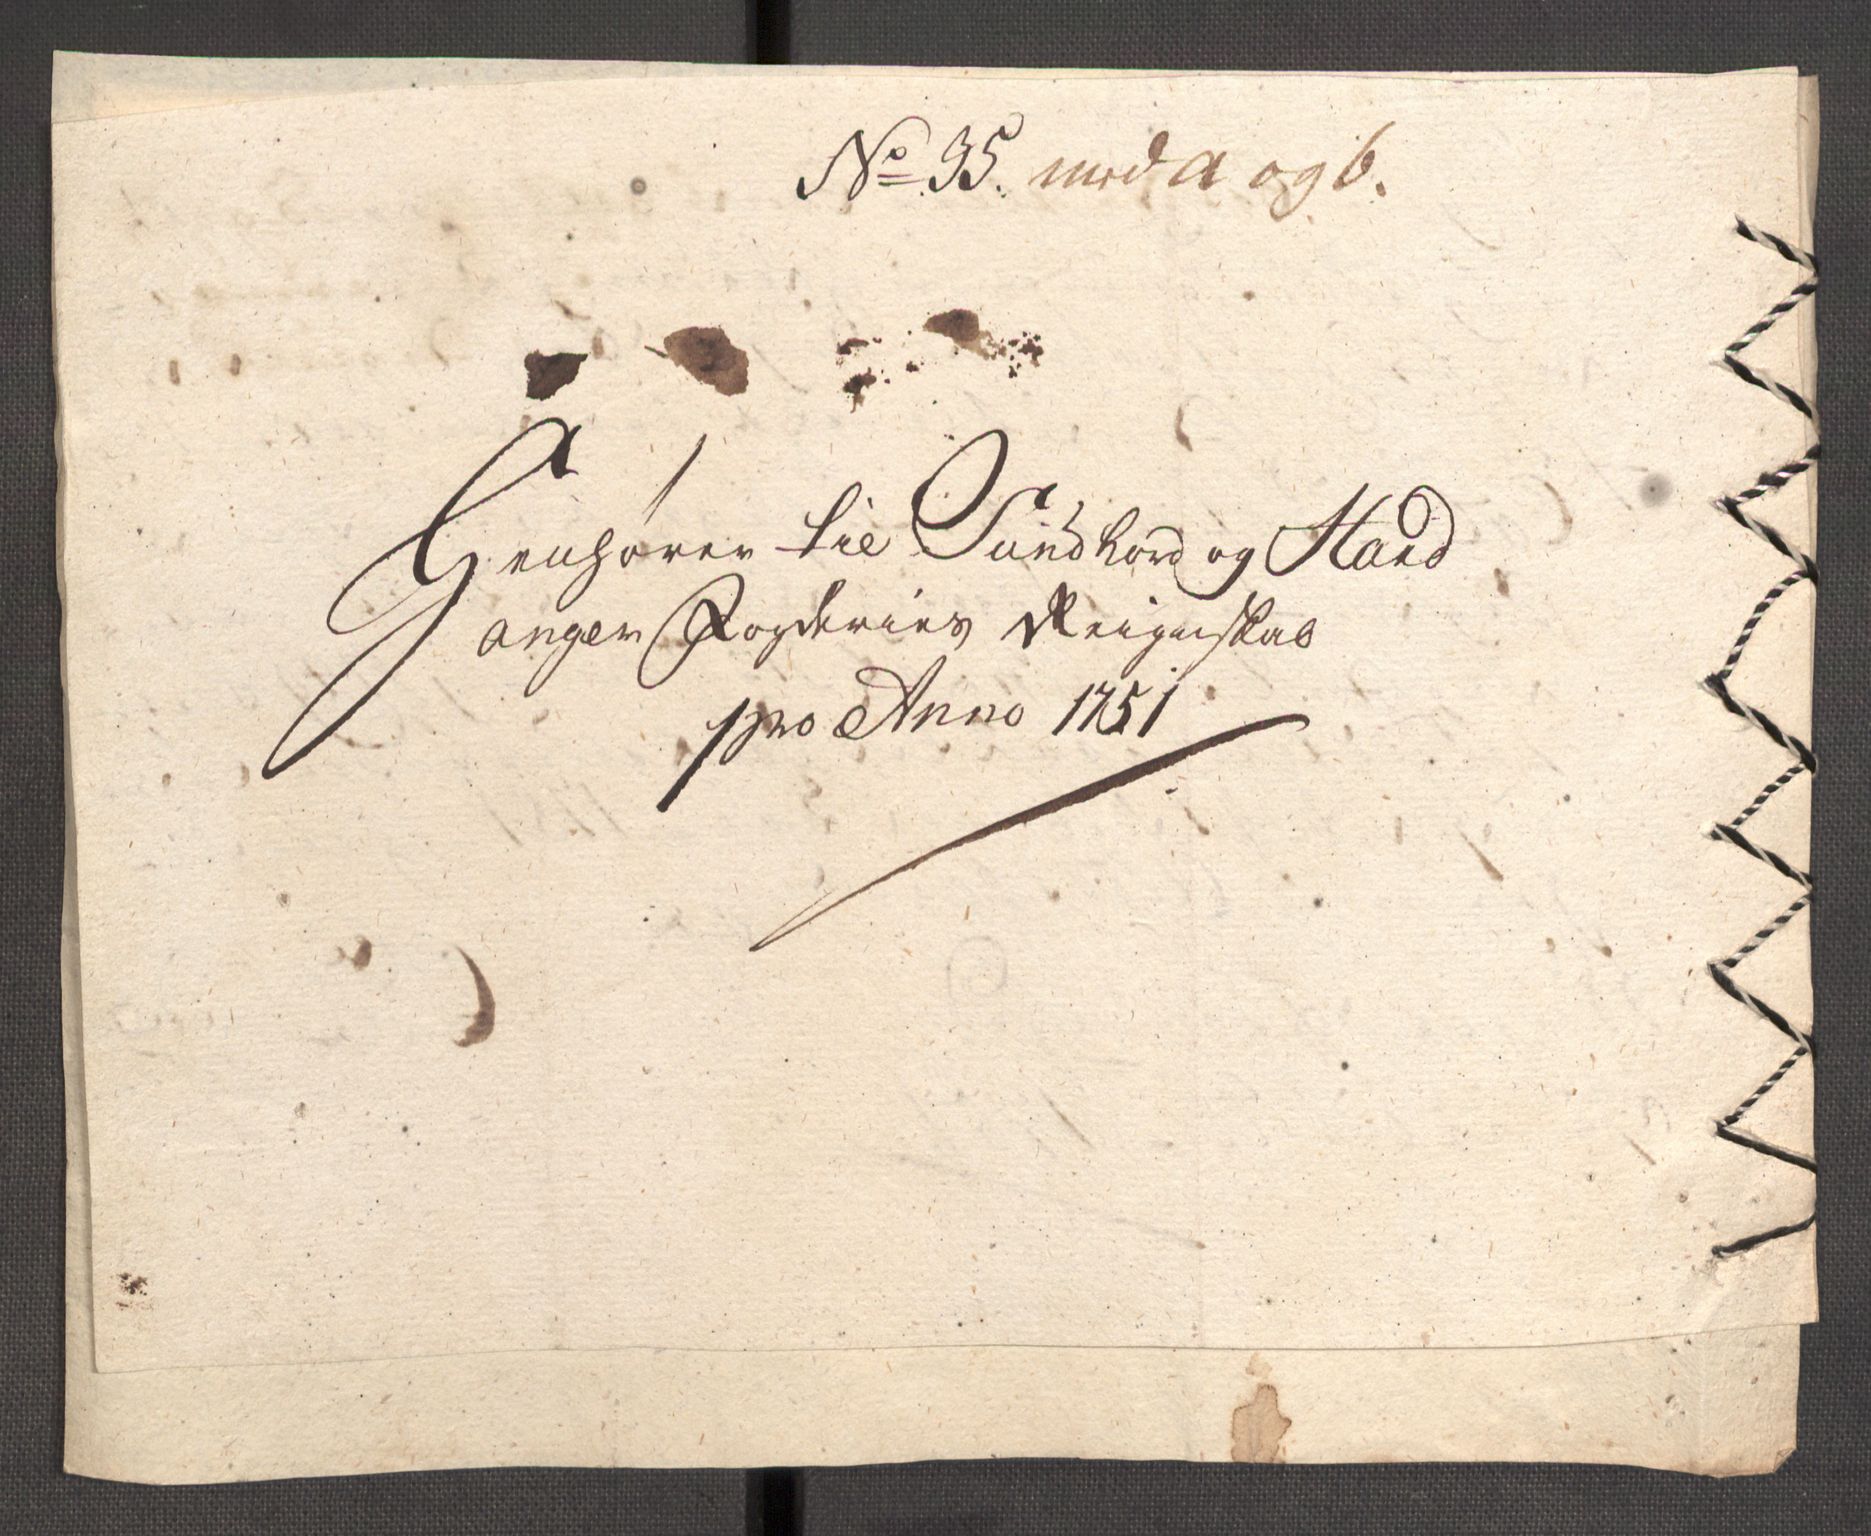 No. 35. med a og b.
Henhører til Sundhord og Hard
anger Fogderies Reignskab
pro Anno 1751